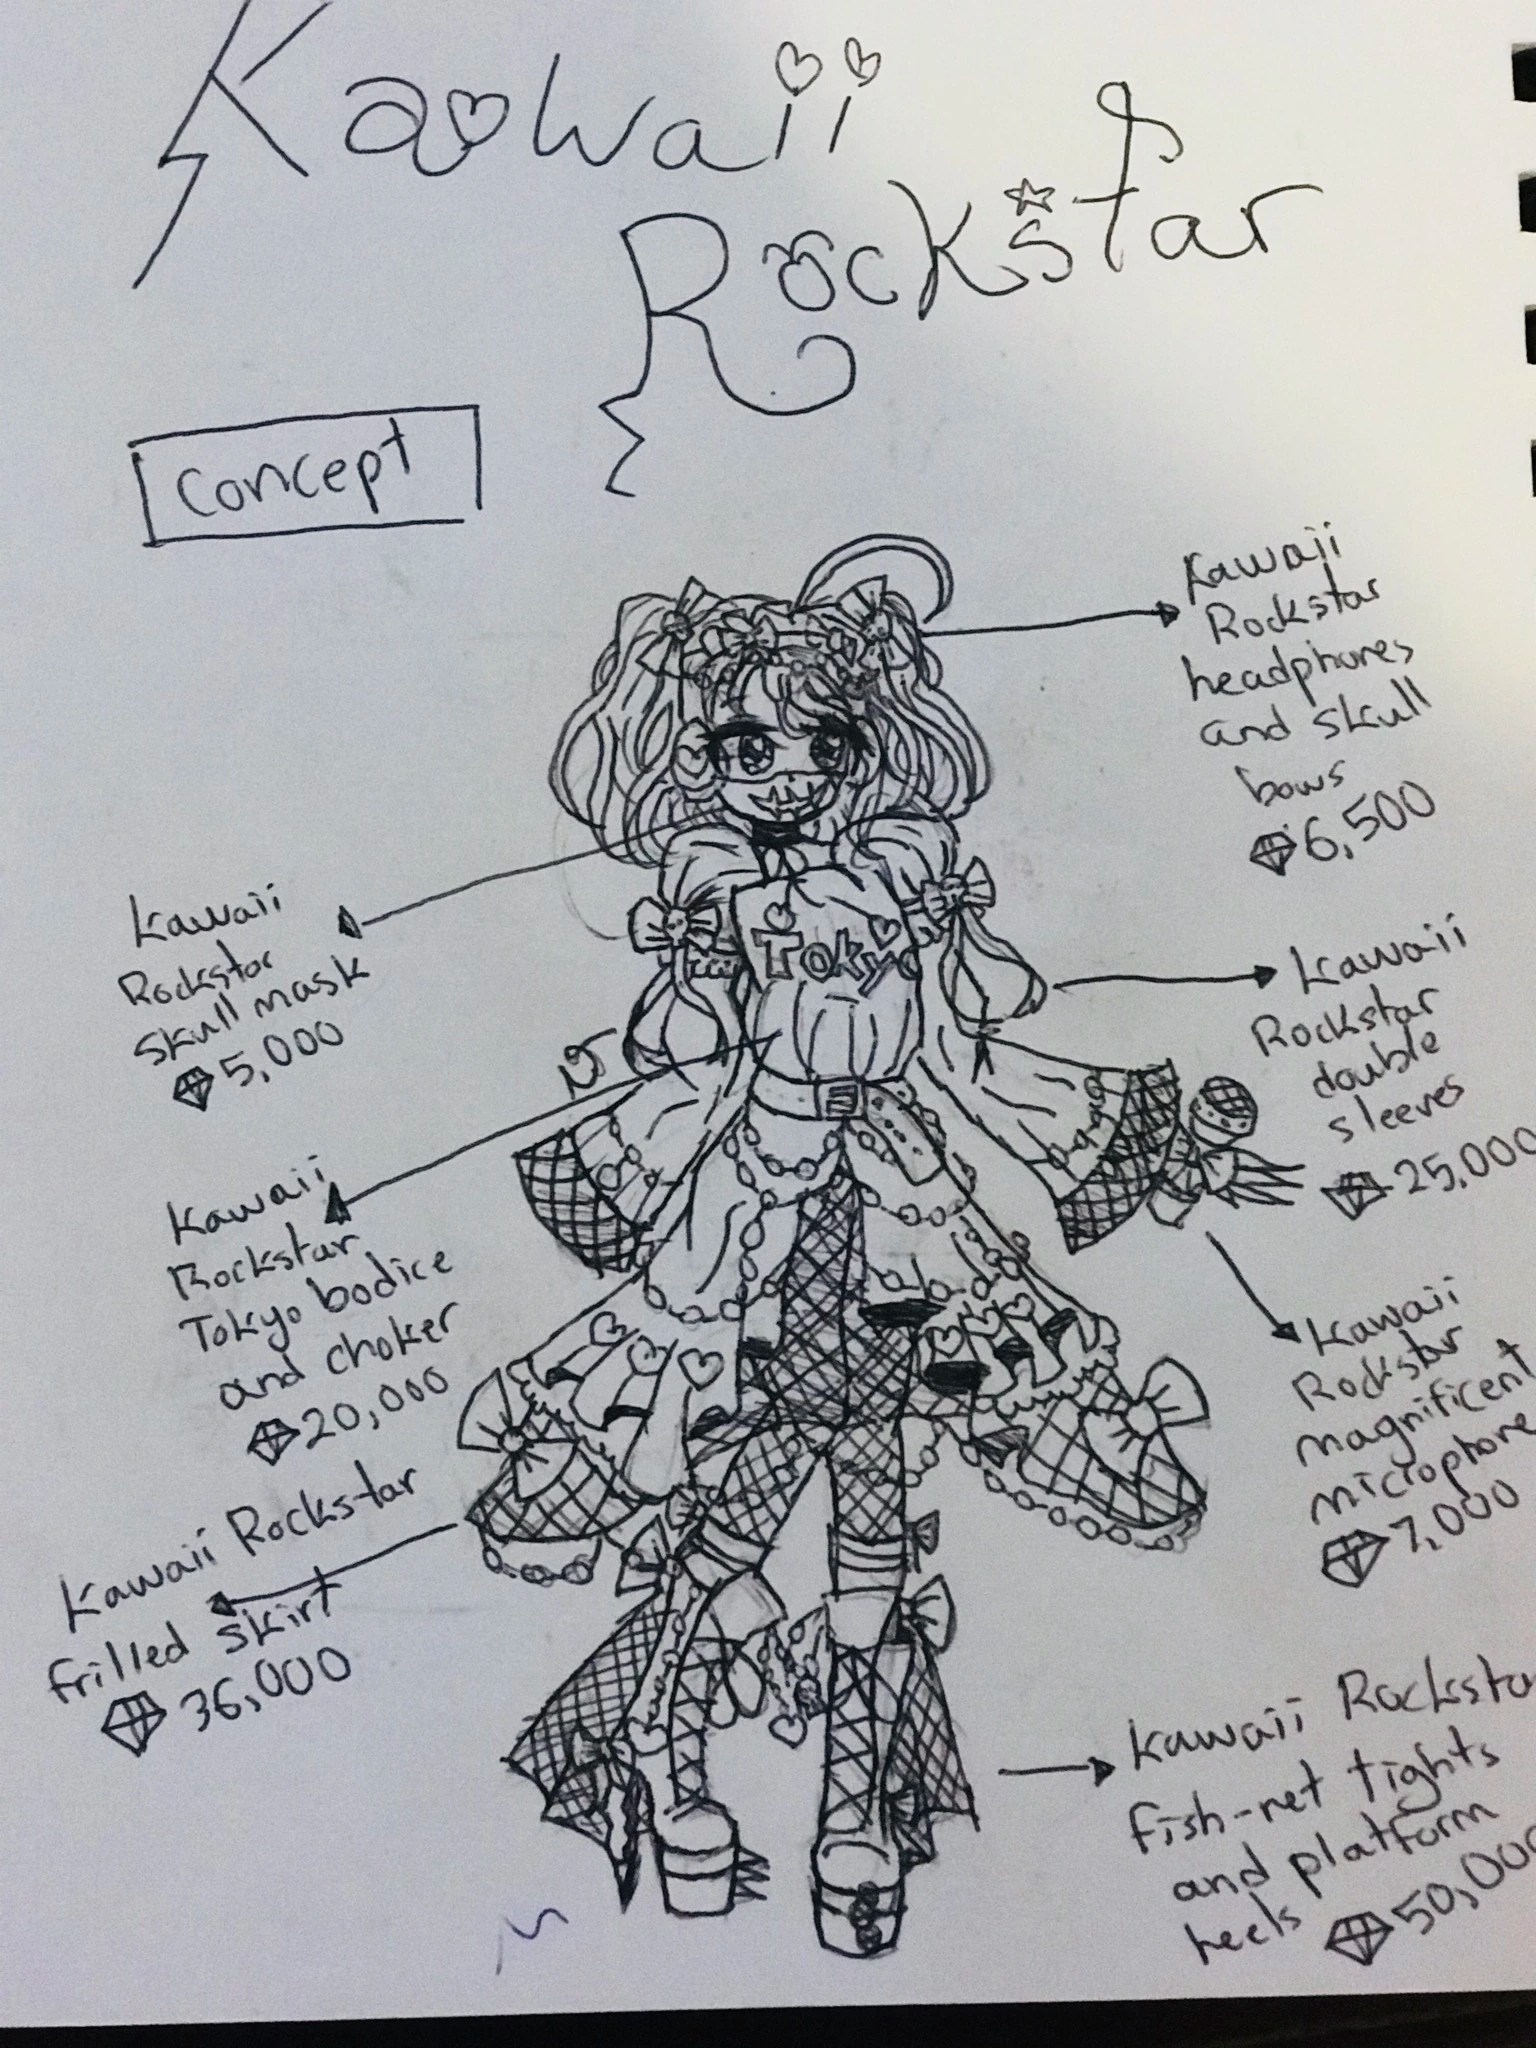 Kawaii
Rockstar
Concept
Kawaii
Rockstar
headphones
and skull
bows
6,500
Kawaii
Rockstar
skull mask
5,000
Tokyo
Kawaii
Rockstar
double
sleeves
25,000
Kawaii
Rockstar
Tokyo bodice
and choker
20,000
Kawaii
Rockstar
magnificent
microphone
7,000
Kawaii Rockstar
frilled skirt
36,000
Kawaii Rockstar
fish-net tights
and platform
heels
50,000